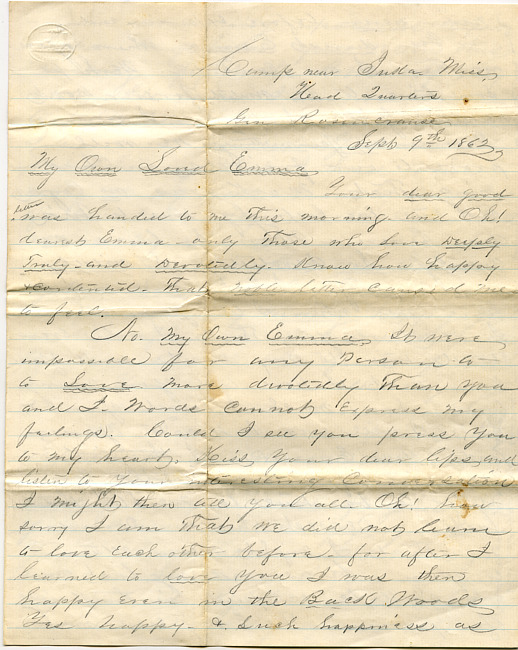 Camp near Iuda. Miss,
Head Quarters
Gen Rosincranse
Sept 9th 1862
My Own Loved Emma
Your dear good
letter
was handed to me this morning. and Oh!
dearest Emma - only those who love Deeply
Truly - and Devotedly. Know how happy
& contented. That little letter caused me
to feel.
No. My Own Emma, It were
impossible for any Person to
to Love more devotedly than you
and I. Words cannot express my
feelings. Could I see you press you
to my heart, Kiss your dear lips, and
listen to your interesting Conversation
I might then tell you all. Oh! how
sorry I am that we did not learn
to love each other before - for after I
learned to love you I was then
happy even in the Back Woods
Yes happy - & such happiness as